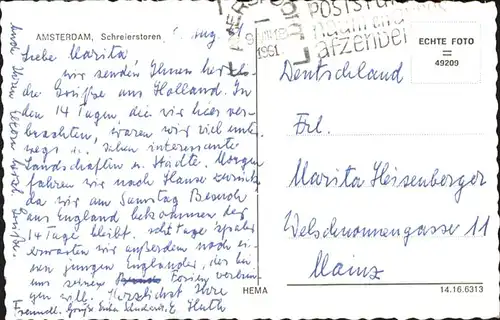 AMSTERDAM, Schreierstoren
Aug
Liebe Marita
wir senden Ihnen herzli-
che Grüße aus Holland. In
den 14 Tagen, die wir hier ver-
brachten, waren wir viel unter-
wegs u. sahen interessante
Landschaften u. Städte. Morgen
fahren wir nach Hause zurück,
da wir am Samstag Besuch
aus England bekommen der
14 Tage bleibt. acht Tage später
erwarten wir außerdem noch ei-
nen jungen Engländer, der bei
uns seinen Ferien verbrin-
gen will. Herzlichst Ihre
Freundl. Grüße E. Huth
Auch Ihren Eltern herzl. Grüße.
1961
POSTST
naam en
afzender
ECHTE FOTO
=
49209
Deutschland
Frl.
Marita Heisenberger
Welschnonnengasse 11
Mainz
HEMA
14.16.6313